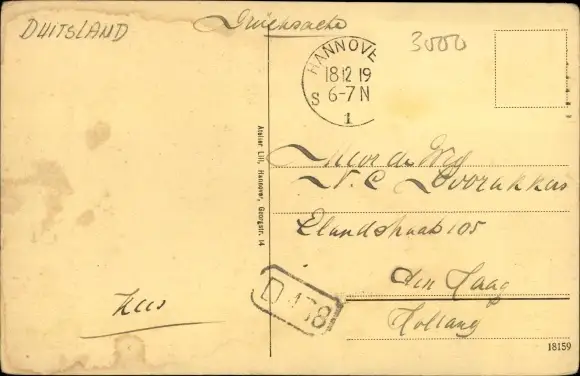 DUITSLAND
Drucksache
3000
HANNOVE
18 12 19
S 6-7 N
1
Atelier Lill, Hannover, Georgstr. 14
de
N. C
Elandstraat 105
den Haag
Holland
Kees
D
18159